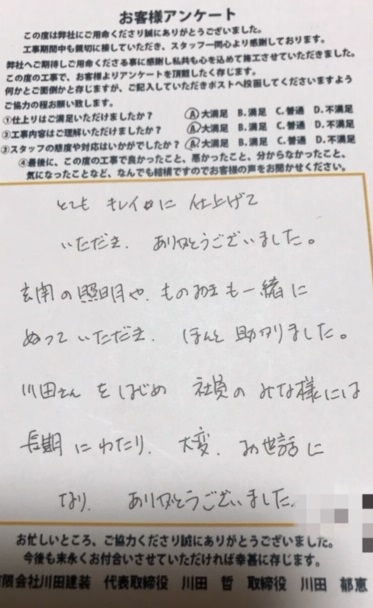 お客様アンケート
この度は弊社にご用命くださり誠にありがとうございました。
工事期間中も親切に接していただき、スタッフ一同心より感謝しております。
弊社へご期待しご用命くださる事に感謝し私共も心を込めて施工させていただきました。
この度の工事で、お客様よりアンケートを頂戴したく存じます。
何かとご面倒かと存じますが、ご記入していただきポストへ投函してくださいますよう
ご協力の程お願い致します。
①仕上りはご満足いただけましたか？ A.大満足 B.満足 C.普通 D.不満足
②工事内容はご理解いただけましたか？ A.大満足 B.満足 C.普通 D.不満足
③スタッフの態度や対応はいかがでしたか？ A.大満足 B.満足 C.普通 D.不満足
④最後に、この度の工事で良かったこと、悪かったこと、分からなかったこと、
気になったことなど、なんでも結構ですのでお客様の声をお聞かせください。
とても キレイに 仕上げて
いただき、ありがとうございました。
玄関の照明や、ものおきも一緒に
ぬっていただき、ほんと助かりました。
川田さんをはじめ 社員のみな様には
長期にわたり、大変、お世話に
なり、ありがとうございました。
お忙しいところ、ご協力くださり誠にありがとうございました。
今後も末永くお付合いさせていただければ幸甚に存じます。
有限会社川田建装 代表取締役 川田 哲 取締役 川田 郁恵